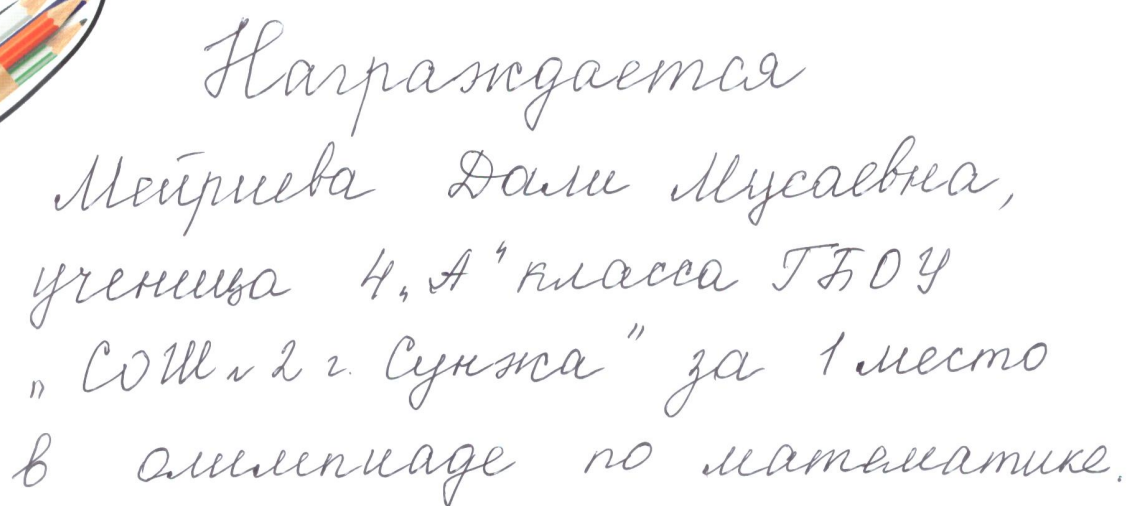 Награждается
Мейриева Дали Мусаевна,
ученица 4 „А“ класса ГБОУ
„СОШ № 2 г. Сунжа” за 1 место
в олимпиаде по математике.